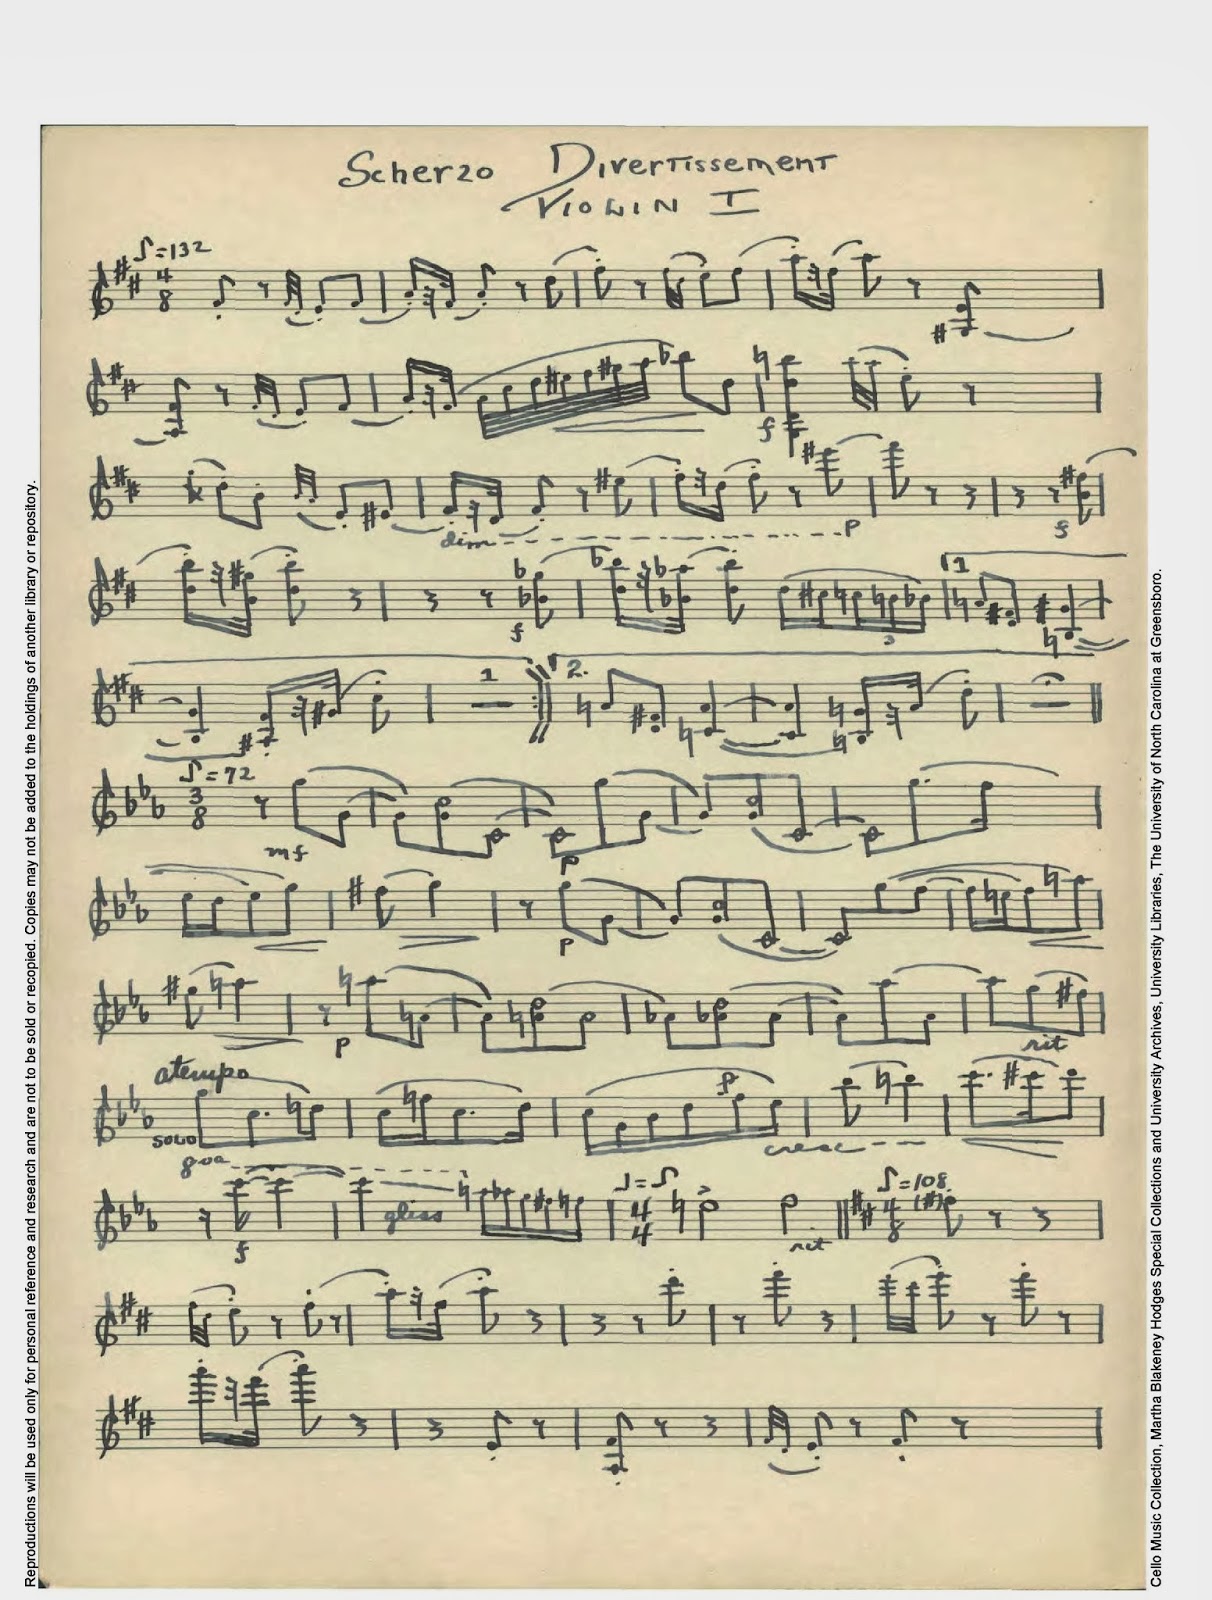 Scherzo Divertissement
Violin I
♪=132
4
8
f
dim
p
f
f
3
1
1
2.
♪=72
3
8
mf
p
p
p
rit
a tempo
solo
p
cresc
8va
f
gliss
♩=♪
4
4
rit
♪=108
(#)
4
8
Reproductions will be used only for personal reference and research and are not to be sold or recopied. Copies may not be added to the holdings of another library or repository.
Cello Music Collection, Martha Blakeney Hodges Special Collections and University Archives, University Libraries, The University of North Carolina at Greensboro.